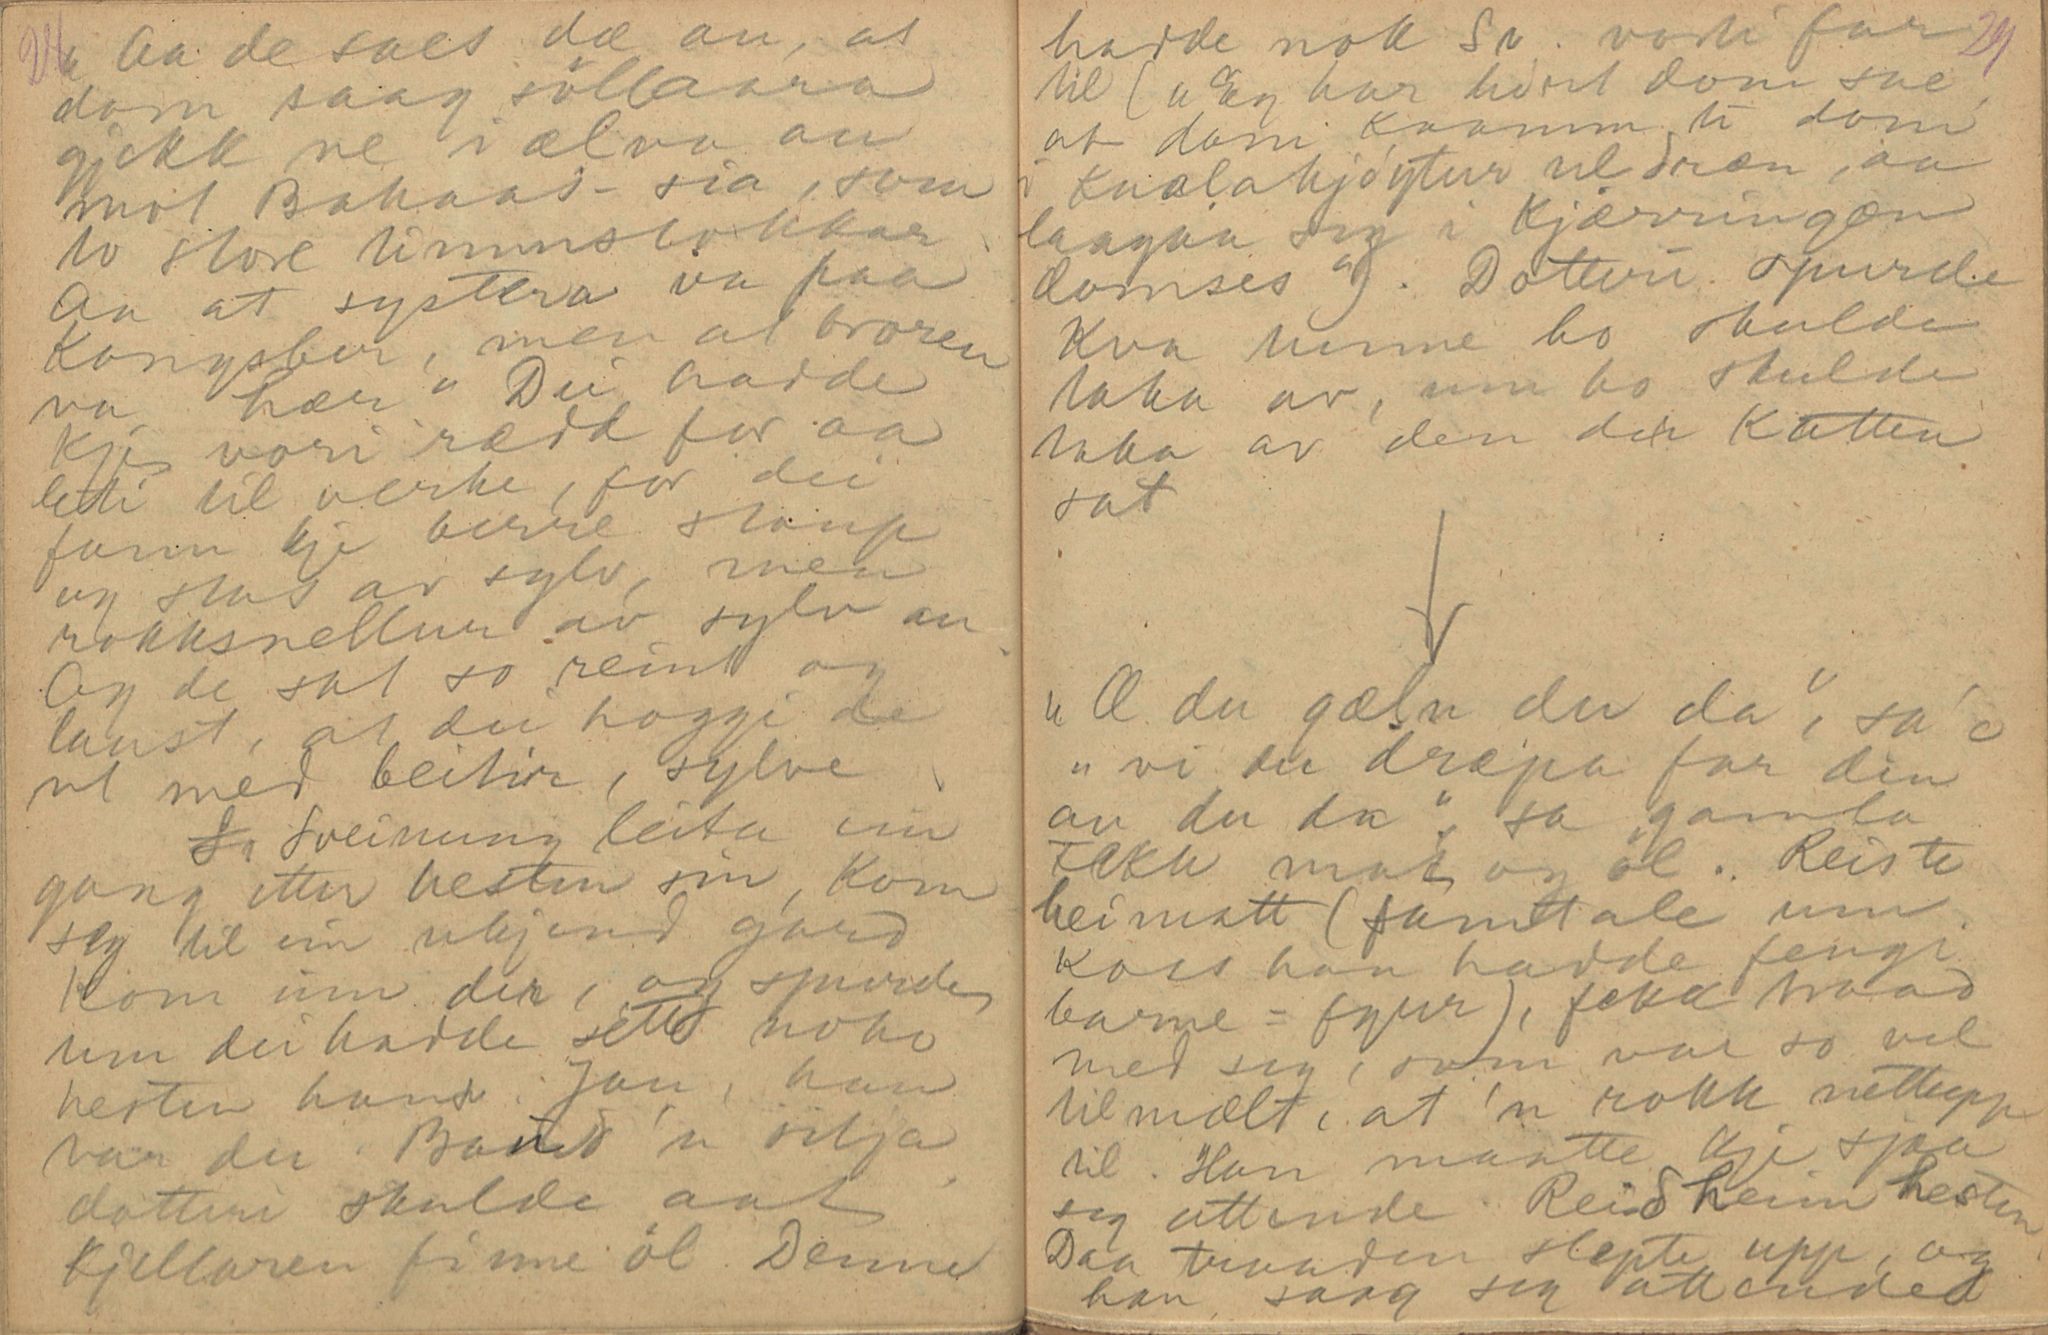 28
„Aa de saes dæ au, at
dom saag söllaara
gjekk ne i ælva au
mot Bakaas-sia, som
to store timmstokkar
Aa at systera va paa
Kongsber, men at broren
va hær" Dei hadde
kje vori rædd for aa
leti til verke, for dei
fann kje berre staup
og stas av sylv, men
rokksnellur av sylv au
Og de sat so reint og
laust, at dei hoggji de
ut med beitir, sylve
Sveinung leita ein
gong etter hesten sin, Kom
seg til ein ukjend gard
Kom inn der, og spurde
um dei hadde sett noko
hesten hans. Jau, han
var der. Baud 'n öilja
dotteri skulde aat
kjellaren finne öl. Denne
29
hadde nok Sv. vori far
til („Eg har hört dom sae,
at dom kaamm ti dom
i kvælahjöytur
laagaa seg i Kjærringæn
domses"). Dotteri spurde
Kva tunne ho skulde
taka av, um ho skulde
taka av den der Katten
sat
„Æ du gæln du da", sa 'e
„vi du dræpa far din
au du da", sa gamla
Fekk mat og öl. Reiste
heimatt (samtale um
Koss han hadde fengi
barne = fyur), fekk traad
med seg, som var so vel
tilmælt, at 'n rokk nettupp
til. Han maatte kje sjaa
seg attende. Reid heim hesten
Daa traaden slepte upp, og
han saag seg attende